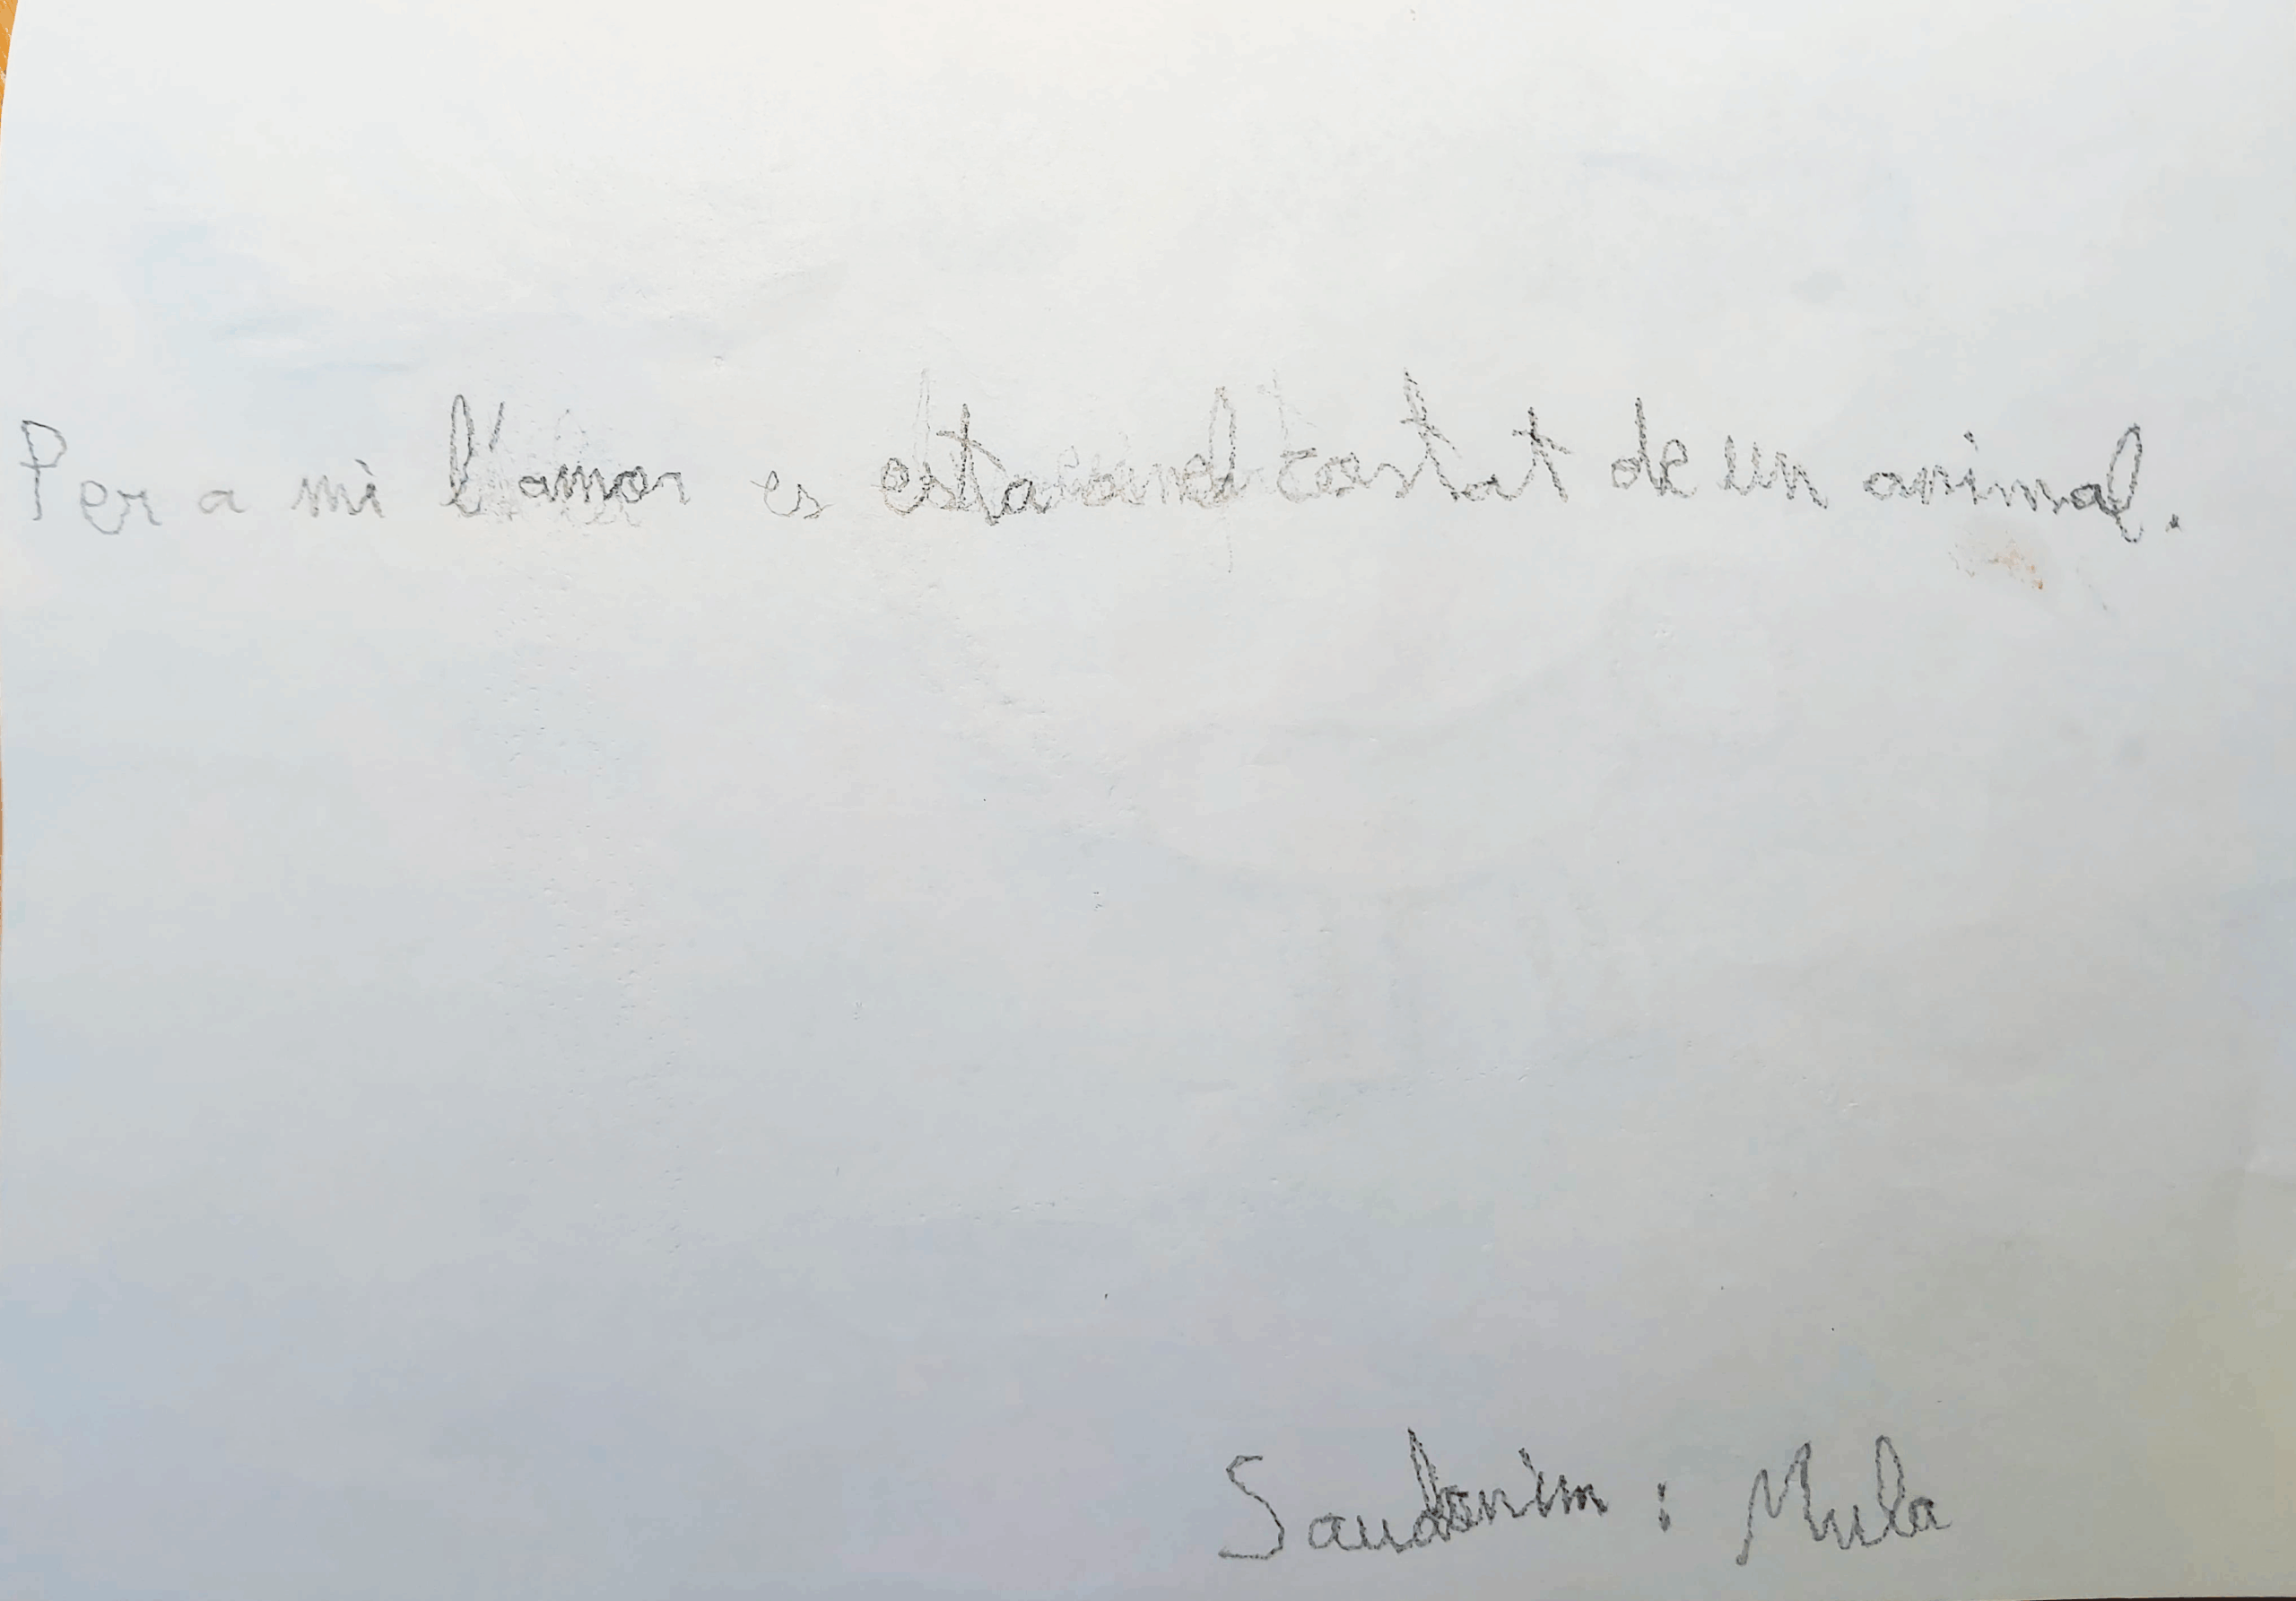 Per a mi l'amor es esta el costat de un animal.
Saudonim : Mula